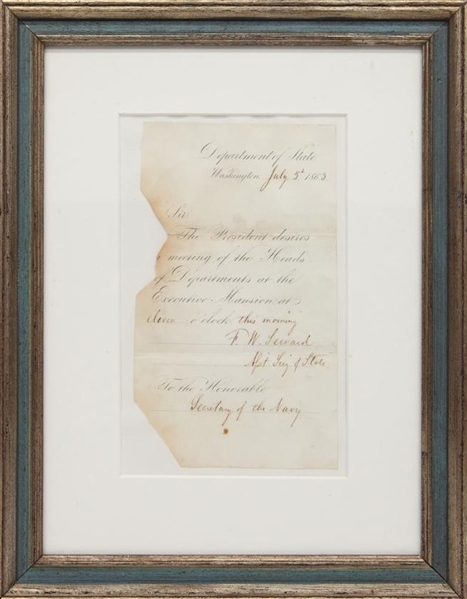 Department of State
Washington July 3d 1863
Sir
The President desires
meeting of the Heads
of Departments at the
Executive Mansion at
eleven o'clock this morning
F. W. Seward
Asst Secy of State
To the Honorable
Secretary of the Navy